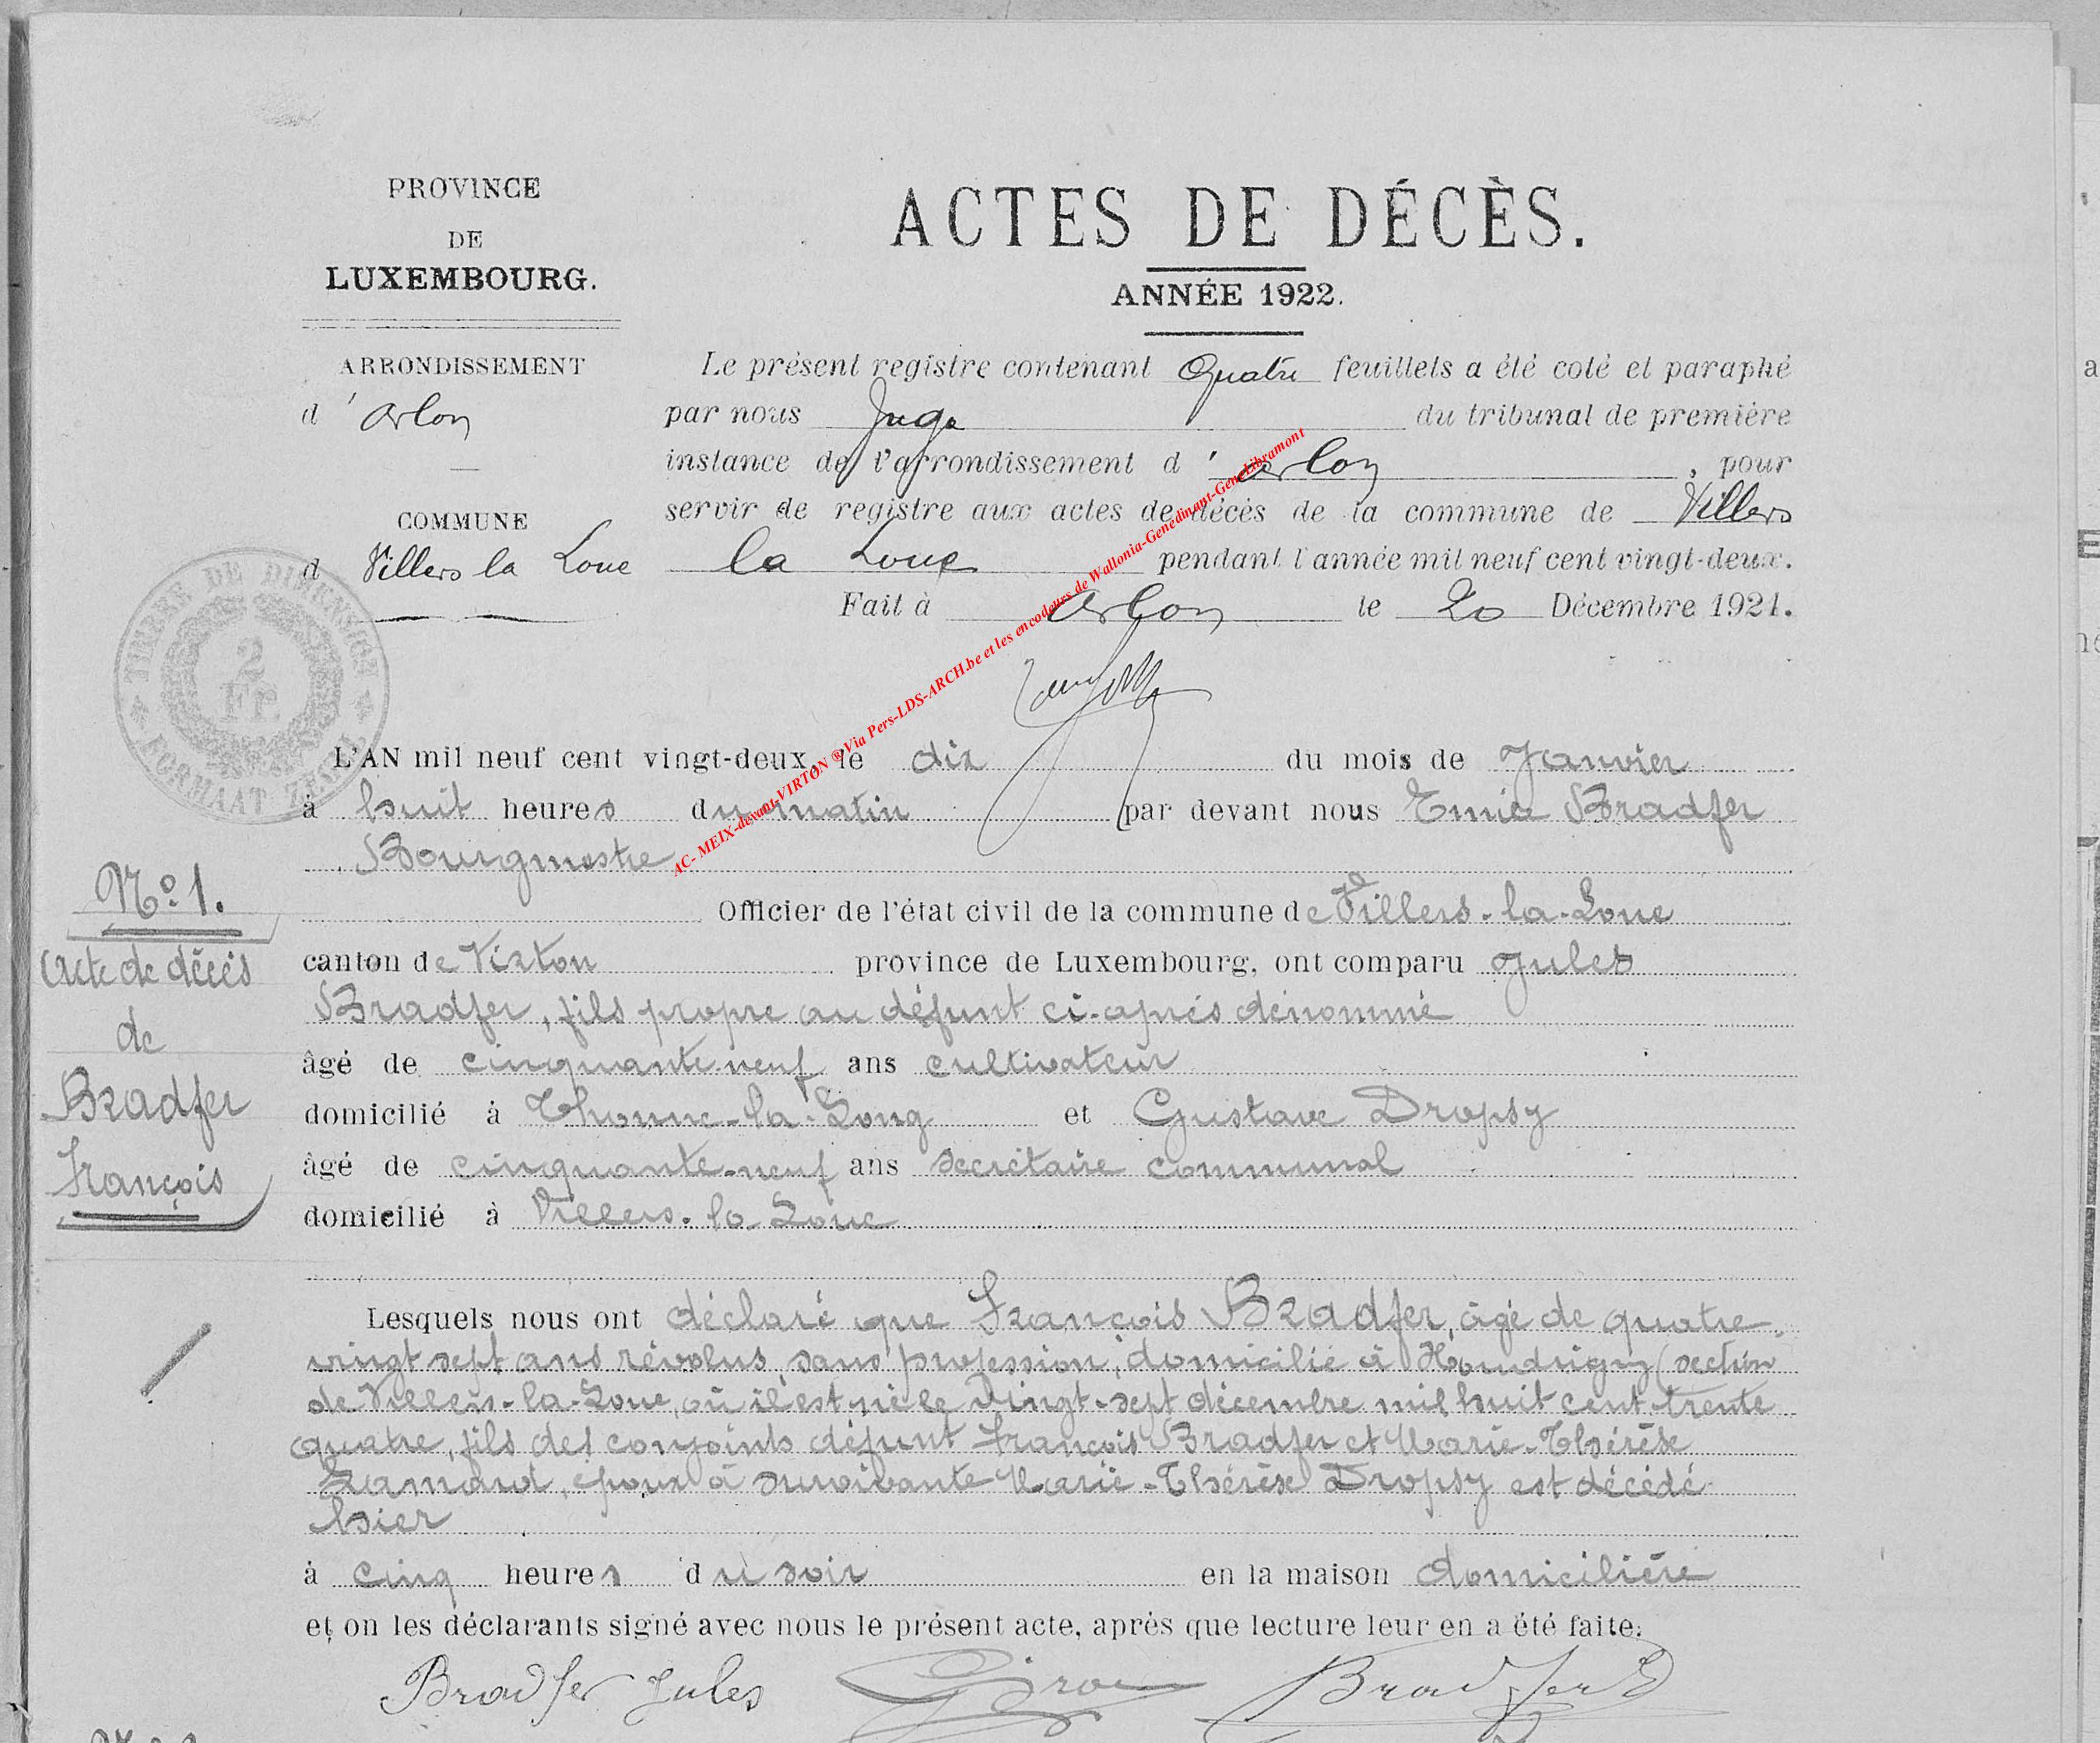 PROVINCE
DE
LUXEMBOURG.
ACTES DE DÉCÈS.
ANNÉE 1922.
ARRONDISSEMENT
d'Arlon
COMMUNE
d Villers la Loue
Le présent registre contenant Quatre feuillets a été coté et paraphé
par nous Juge du tribunal de première
instance de l'arrondissement d'Arlon, pour
servir de registre aux actes de décès de la commune de Villers
la Loue pendant l'année mil neuf cent vingt-deux.
Fait à Arlon le 20 Décembre 1921.
TIMBRE DE DIMENSION
2
Fr.
FORMAAT ZEGEL
AC- MEIX-devant-VIRTON ® Via Pers-LDS-ARCH.be et les encodeurs de Wallonia-Genedinant-GeneLibramont
L'AN mil neuf cent vingt-deux, le dix du mois de Janvier
à huit heures du matin par devant nous Emile Bradfer
Bourgmestre
Officier de l'état civil de la commune de Villers-la-Loue
canton de Virton province de Luxembourg, ont comparu Jules
Bradfer, fils propre au défunt ci-après dénommé
âgé de cinquante-neuf ans cultivateur
domicilié à Thonne-la-Long et Gustave Dropsy
âgé de cinquante-neuf ans secrétaire communal
domicilié à Villers-la-Loue
No 1.
Acte de décès
de
Bradfer
François
Lesquels nous ont déclaré que François Bradfer, âgé de quatre-
vingt sept ans révolus, sans profession, domicilié à Houdrigny (section
de Villers-la-Loue, où il est né le vingt-sept décembre mil huit cent trente
quatre, fils des conjoints défunt François Bradfer et Marie-Thérèse
époux à survivante Marie-Thérèse Dropsy est décédé
hier
à cinq heures du soir en la maison domicilière
et on les déclarants signé avec nous le présent acte, après que lecture leur en a été faite.
Bradfer Jules
Bradfer E